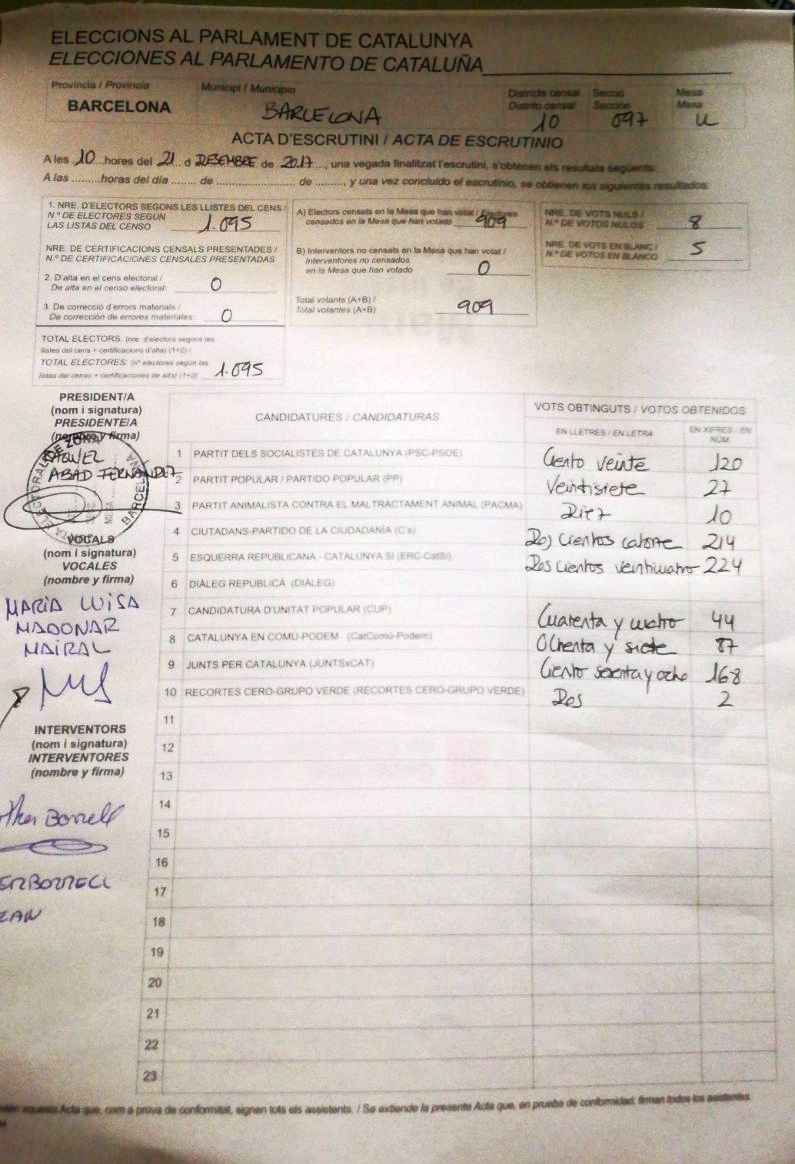 ELECCIONS AL PARLAMENT DE CATALUNYA
ELECCIONES AL PARLAMENTO DE CATALUÑA
Província / Provincia
BARCELONA
Municipi / Municipio
BARCELONA
Districte censal
Distrito censal
10
Secció
Sección
097
Mesa
Mesa
U
ACTA D'ESCRUTINI / ACTA DE ESCRUTINIO
A les 10 hores del 21 d DESEMBRE de 2017, una vegada finalitzat l'escrutini, s'obtenen els resultats següents:
A las .........horas del día ....... de .................... de ........, y una vez concluido el escrutinio, se obtienen los siguientes resultados:
1. NRE. D'ELECTORS SEGONS LES LLISTES DEL CENS /
N.º DE ELECTORES SEGÚN
LAS LISTAS DEL CENSO 1.095
NRE. DE CERTIFICACIONS CENSALS PRESENTADES /
N.º DE CERTIFICACIONES CENSALES PRESENTADAS
2. D'alta en el cens electoral /
De alta en el censo electoral: 0
3. De correcció d'errors materials /
De corrección de errores materiales: 0
TOTAL ELECTORS: (nre. d'electors segons les
llistes del cens + certificacions d'alta) (1+2) /
TOTAL ELECTORES: (nº electores según las
listas del censo + certificaciones de alta) (1+2) 1.095
A) Electors censats en la Mesa que han votat / Electores
censados en la Mesa que han votado 909
B) Interventors no censats en la Mesa que han votat /
Interventores no censados
en la Mesa que han votado 0
Total votants (A+B) /
Total votantes (A+B) 909
NRE. DE VOTS NULS /
N.º DE VOTOS NULOS 8
NRE. DE VOTS EN BLANC /
N.º DE VOTOS EN BLANCO 5
PRESIDENT/A
(nom i signatura)
PRESIDENTE/A
(nombre y firma)
ABAD FERNANDEZ
VOCALS
(nom i signatura)
VOCALES
(nombre y firma)
MARIA LUISA
MADONAR
MAIRAL
INTERVENTORS
(nom i signatura)
INTERVENTORES
(nombre y firma)
Borrell
BORRELL
CANDIDATURES / CANDIDATURAS
VOTS OBTINGUTS / VOTOS OBTENIDOS
EN LLETRES / EN LETRA
EN XIFRES / EN NÚM.
1 PARTIT DELS SOCIALISTES DE CATALUNYA (PSC-PSOE) Ciento veinte 120
2 PARTIT POPULAR / PARTIDO POPULAR (PP) Veintisiete 27
3 PARTIT ANIMALISTA CONTRA EL MALTRACTAMENT ANIMAL (PACMA) Diez 10
4 CIUTADANS-PARTIDO DE LA CIUDADANÍA (C's) Dos cientos catorce 214
5 ESQUERRA REPUBLICANA - CATALUNYA SÍ (ERC-CatSí) Dos cientos veinticuatro 224
6 DIÀLEG REPUBLICÀ (DIÀLEG)
7 CANDIDATURA D'UNITAT POPULAR (CUP) Cuarenta y cuatro 44
8 CATALUNYA EN COMÚ-PODEM (CatComú-Podem) Ochenta y siete 87
9 JUNTS PER CATALUNYA (JUNTSxCAT) Ciento sesenta y ocho 168
10 RECORTES CERO-GRUPO VERDE (RECORTES CERO-GRUPO VERDE) Dos 2
11
12
13
14
15
16
17
18
19
20
21
22
23
aquesta Acta que, com a prova de conformitat, signen tots els assistents. / Se extiende la presente Acta que, en prueba de conformidad, firman todos los asistentes.